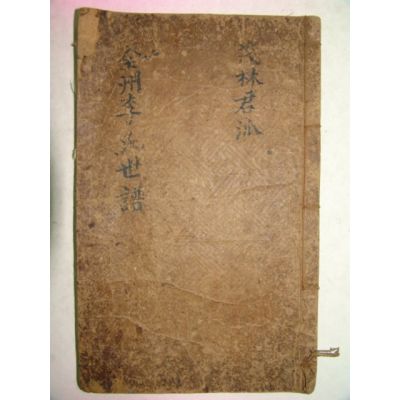 茂林君派
全州李氏世譜